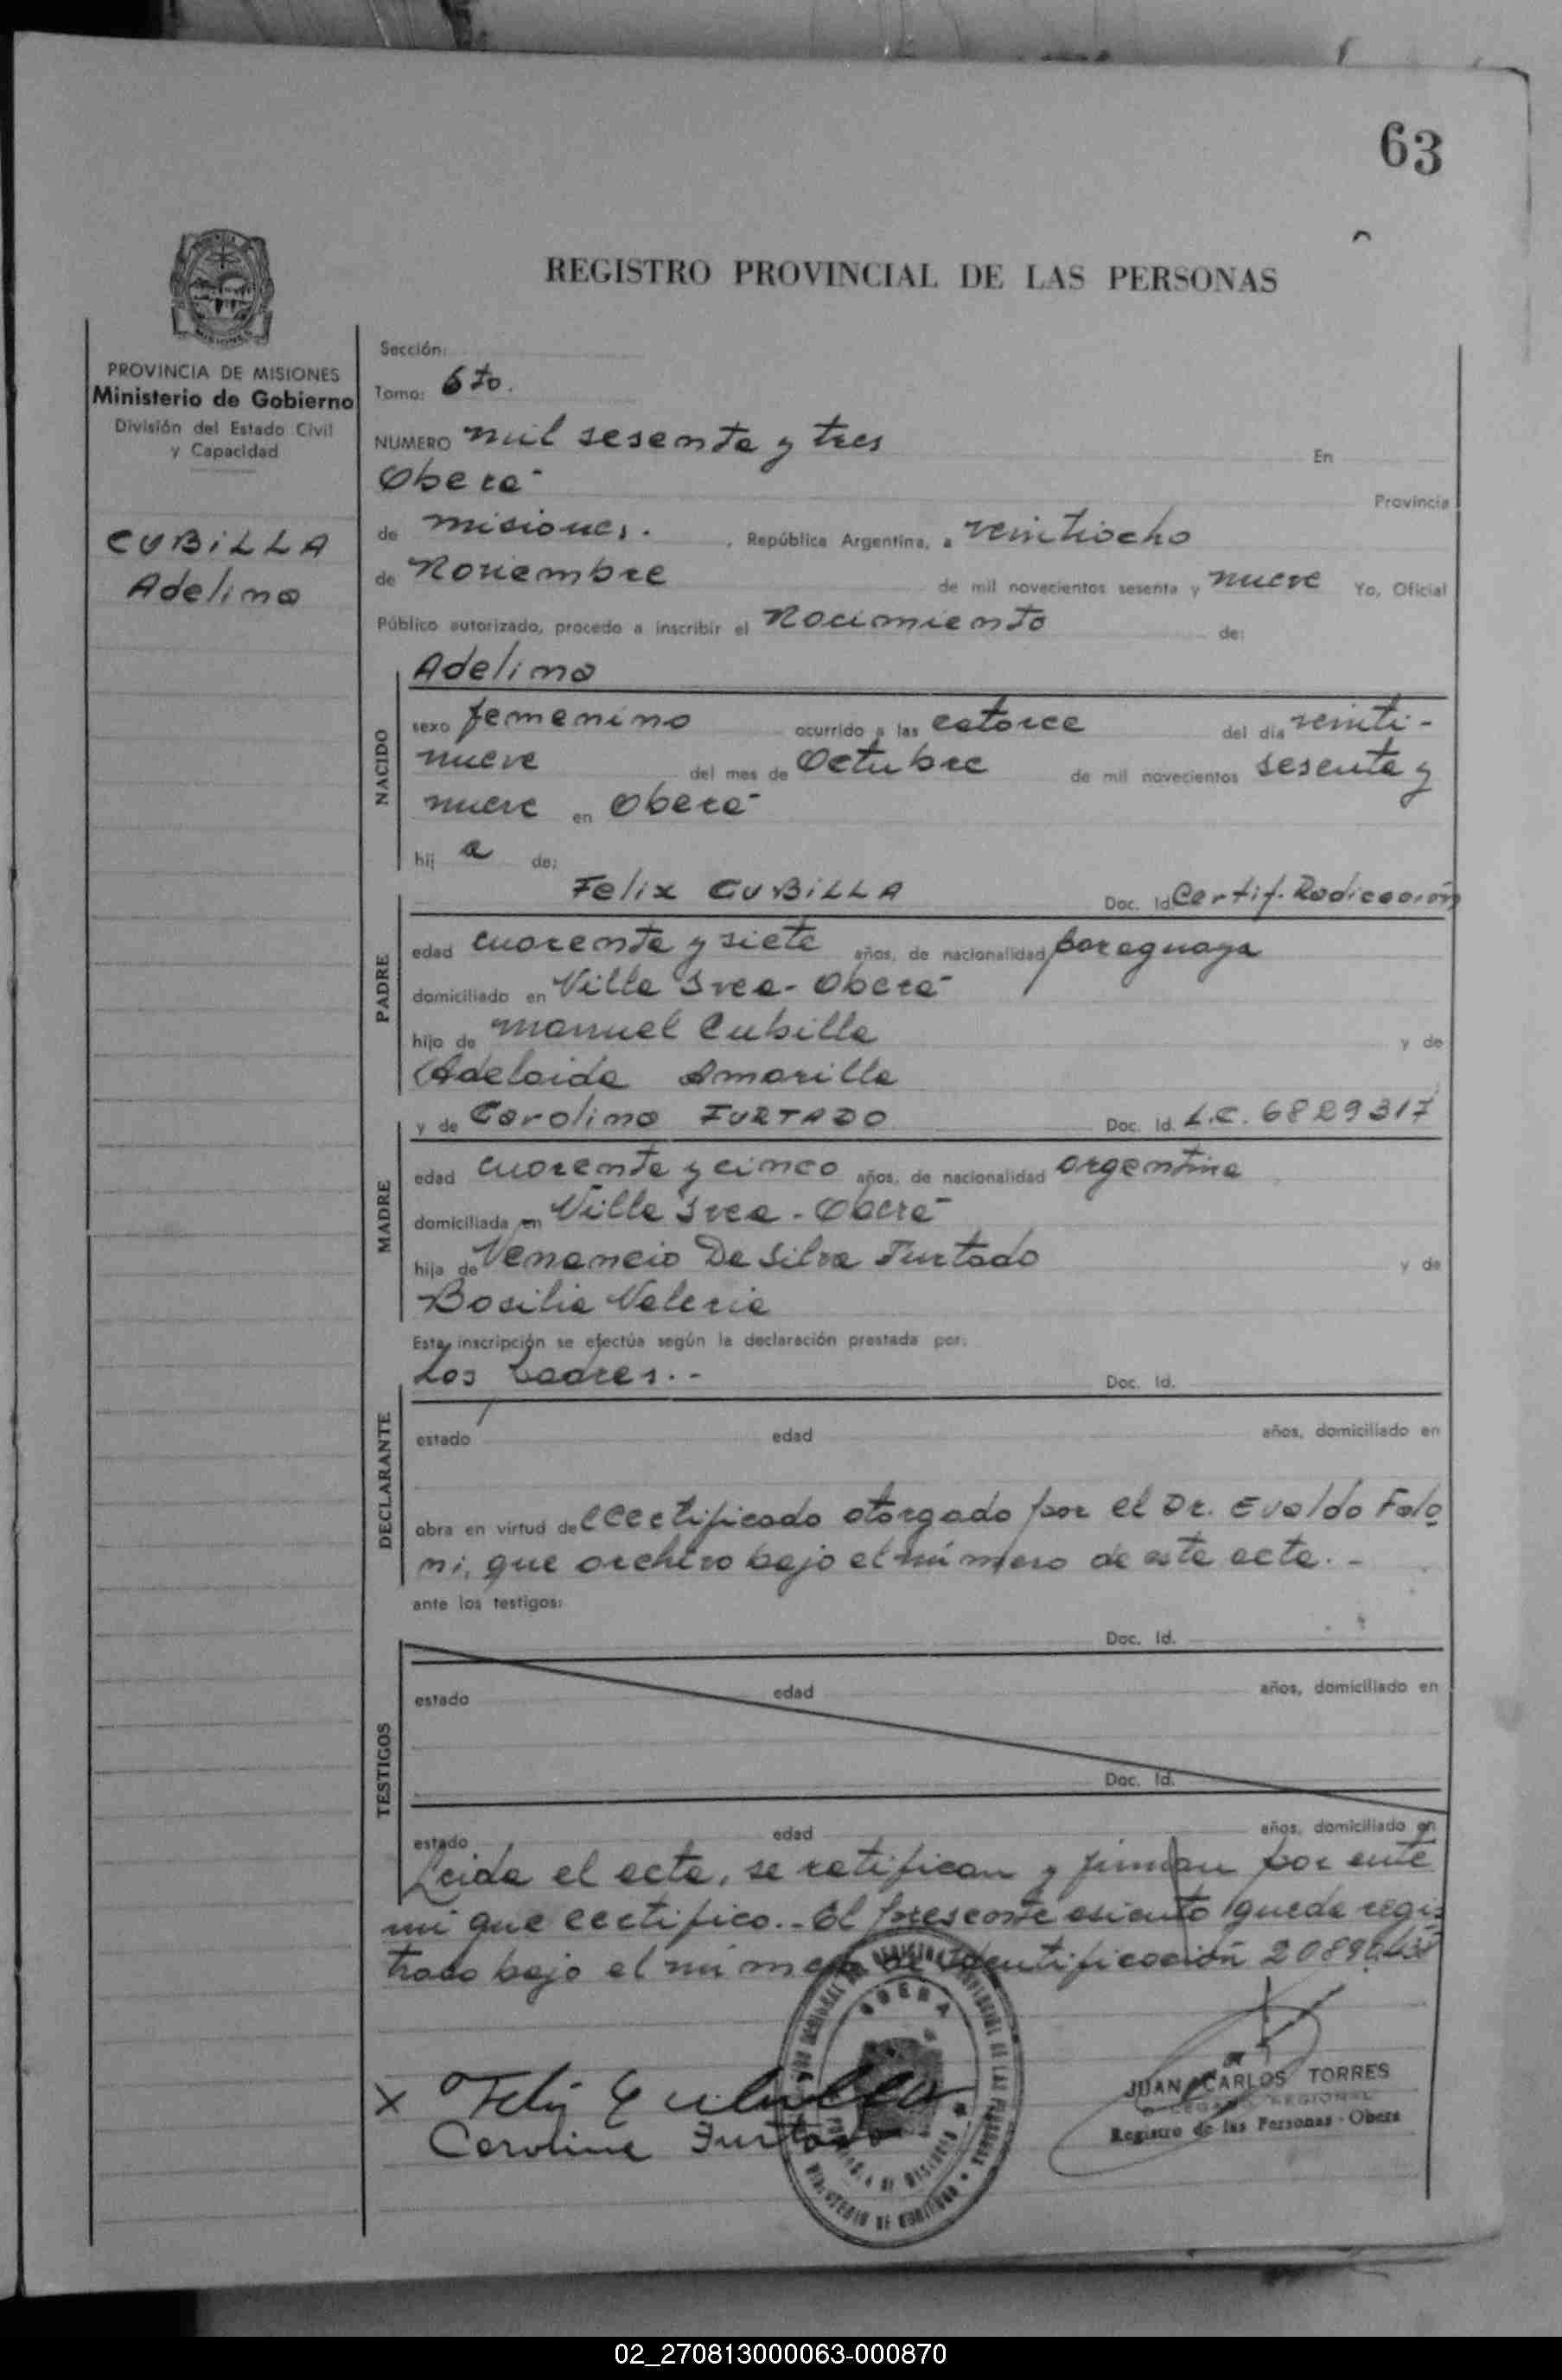 63
REGISTRO PROVINCIAL DE LAS PERSONAS
PROVINCIA DE MISIONES
Ministerio de Gobierno
División del Estado Civil
y Capacidad
CUBILLA
Adelina
Sección:
Tomo: 6to.
NUMERO mil sesenta y tres En
Oberá
Provincia
de misiones. , República Argentina, a veintiocho
de Noviembre de mil novecientos sesenta y nueve Yo, Oficial
Público autorizado, procedo a inscribir el Nacimiento de:
Adelina
NACIDO
sexo femenino ocurrido a las catorce del día veinti-
nueve del mes de Octubre de mil novecientos sesenta y
nueve en Oberá
hij a de:
Felix CUBILLA Doc. Id. Certif. Radicación
PADRE
edad cuarenta y siete años, de nacionalidad paraguaya
domiciliado en Villa Svea - Oberá
hijo de Manuel Cubilla y de
Adelaida Amarilla
y de Carolina FURTADO Doc. Id. L.C. 6829317
MADRE
edad cuarenta y cinco años, de nacionalidad argentina
domiciliada en Villa Svea - Oberá
hija de Venancio Da Silva Furtado y de
Basilia Valeria
Esta inscripción se efectúa según la declaración prestada por:
Los padres. - Doc. Id.
DECLARANTE
estado edad años, domiciliado en
obra en virtud del certificado otorgado por el Dr. Evaldo Falo
ni, que archivo bajo el número de esta acta. -
ante los testigos:
Doc. Id.
TESTIGOS
estado edad años, domiciliado en
Doc. Id.
estado edad años, domiciliado en
Leida el acta, se ratifican y firman por ante
mi que certifico.- El presente asiento queda regis
trado bajo el número de identificación
OBERA
Felix Cubilla
Carolina Furtado
JUAN CARLOS TORRES
DELEGADO REGIONAL
Registro de las Personas - Obera
02_270813000063-000870